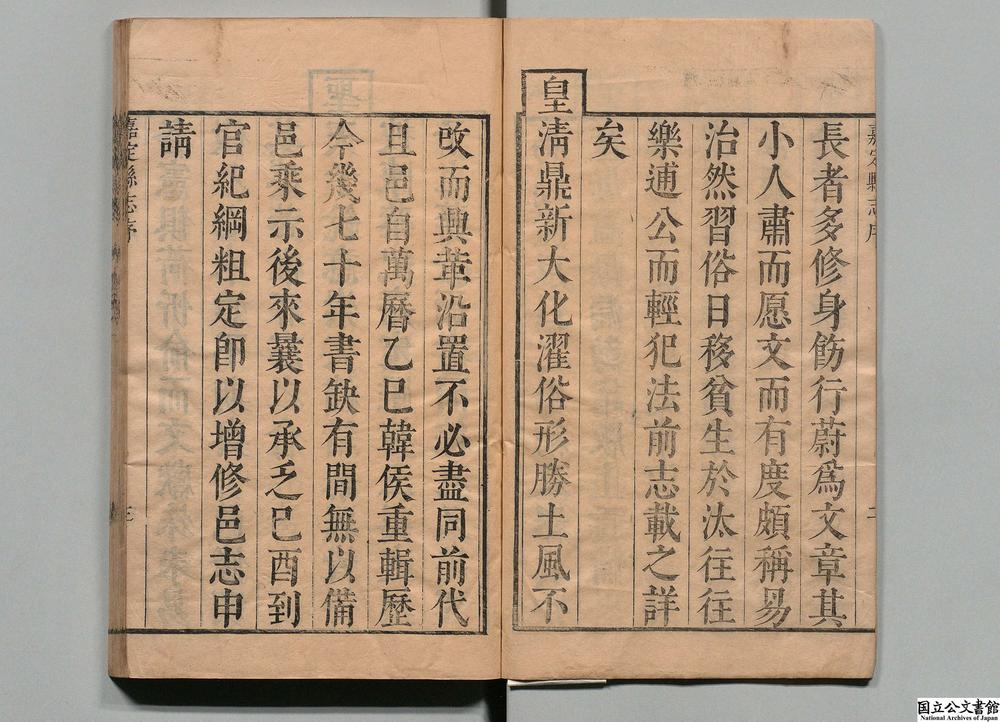 嘉定縣志序
二
長者多修身飭行蔚爲文章其
小人肅而愿文而有度頗稱易
治然習俗日移貧生於汰往往
樂逋公而輕犯法前志載之詳
矣
皇清鼎新大化濯俗形勝土風不
改而興革沿置不必盡同前代
且邑自萬曆乙巳韓侯重輯歷
今幾七十年書缺有間無以備
邑乘示後來曩以承乏己酉到
官紀綱粗定卽以增修邑志申
請
嘉定縣志序
三
国立公文書館
National Archives of Japan